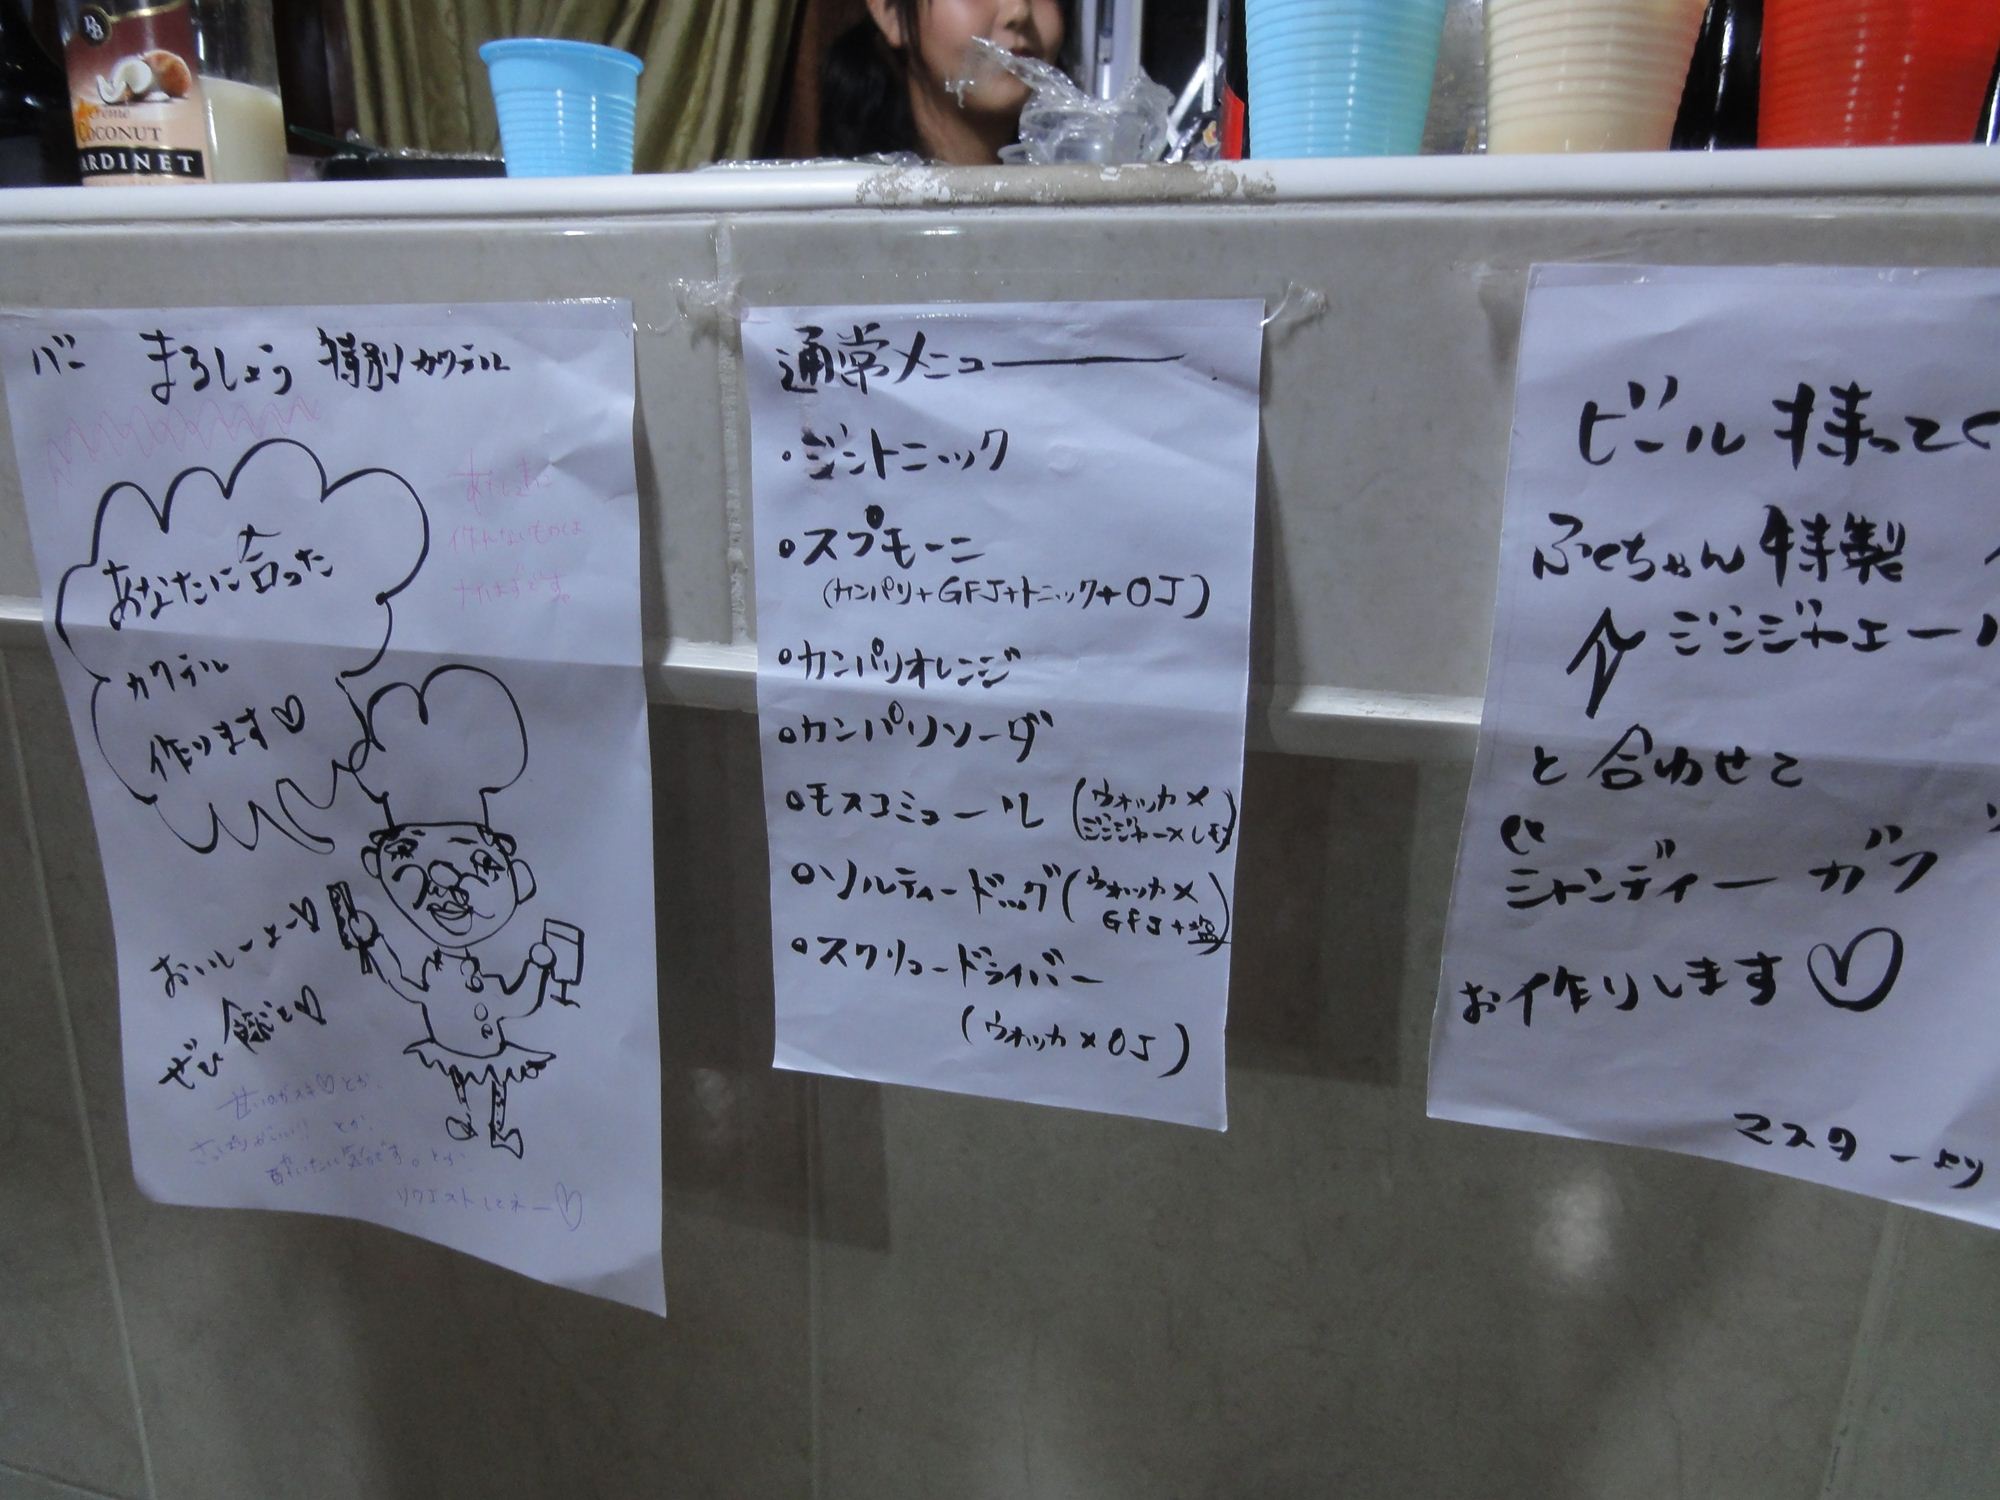 Crème
COCONUT
ARDINET
バー まるしょう 特別カクテル
あなたに合った
カクテル
作ります♡
作れないものは
ナイはずです。
おいしーよー♡
ぜひ飲んで♡
甘いのがスキ♡とか、
さっぱりがいい!! とか、
酔いたい気分です。とか
リクエストしてネー♡
通常メニュー
・ジントニック
・スプモーニ
(カンパリ+GFJ+トニック+OJ)
・カンパリオレンジ
・カンパリソーダ
・モスコミュール (ウォッカ×
ジンジャー×レモン)
・ソルティードッグ (ウォッカ×
GFJ+塩)
・スクリュードライバー
(ウォッカ×OJ)
ビール 持ってく
ふくちゃん 特製
↑ ジンジャエール
と 合わせて
シャンディーガフ
お作りします♡
マスターより